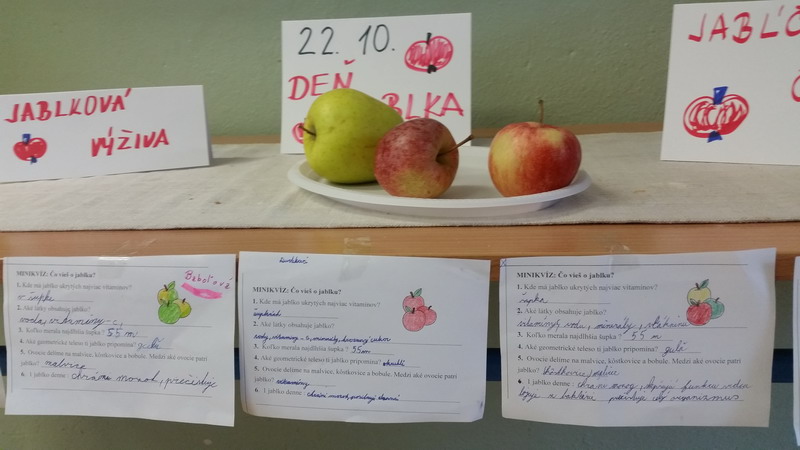 JABLKOVÁ
VÝŽIVA
22. 10.
DEŇ
BLKA
JABĹČ
MINIKVÍZ: Čo vieš o jablku?
1. Kde má jablko ukrytých najviac vitamínov?
v šupke
2. Aké látky obsahuje jablko?
voda, vitamíny - c,
3. Koľko merala najdlhšia šupka? 55 m
4. Aké geometrické teleso ti jablko pripomína? guľu
5. Ovocie delíme na malvice, kôstkovice a bobule. Medzi aké ovocie patrí
jablko? malvice
6. 1 jablko denne : chráni mozok, prečisťuje
MINIKVÍZ: Čo vieš o jablku?
1. Kde má jablko ukrytých najviac vitamínov?
2. Aké látky obsahuje jablko?
vody, vitamíny - c, minerály, cukor
3. Koľko merala najdlhšia šupka? 55m
4. Aké geometrické teleso ti jablko pripomína?
5. Ovocie delíme na malvice, kôstkovice a bobule. Medzi aké ovocie patrí
jablko?
6. 1 jablko denne : chráni mozok,
MINIKVÍZ: Čo vieš o jablku?
1. Kde má jablko ukrytých najviac vitamínov?
šupka
2. Aké látky obsahuje jablko?
vitamíny, vodu, minerály, vláknina
3. Koľko merala najdlhšia šupka? 55 m
4. Aké geometrické teleso ti jablko pripomína? guľa
5. Ovocie delíme na malvice, kôstkovice a bobule. Medzi aké ovocie patrí
jablko? kôstkovice, malvice
6. 1 jablko denne : chráni mozog, funkciu srdca
organizmus